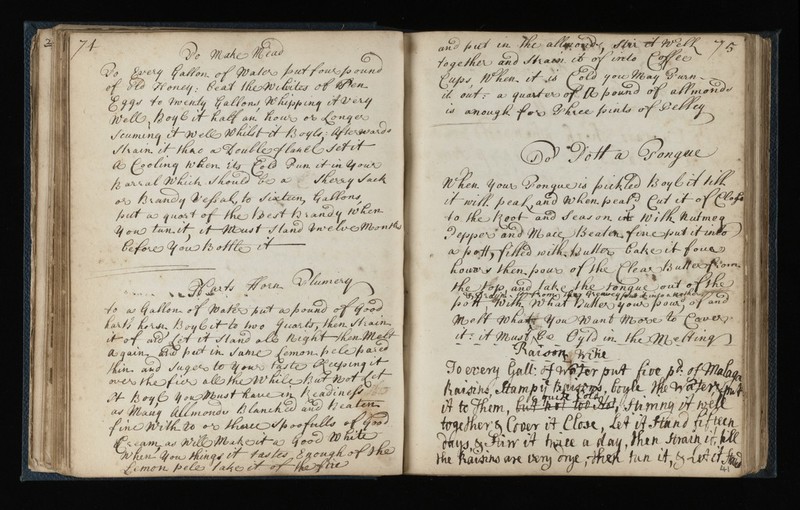 74
To Make Mead
To Every Gallon of Water put four pound
of Old Honey: beat the Whites of
Eggs to twenty Gallons Whipping it Very
Well, Boyl it half an hour or Longer
Scuming it Well Whilst it Boyls, Afterwards
Strain it thro a Double flanel Set it
A Cooling When its Cold Tun it in Your
Barral Which Should be a Sherry Sack
or Brandy Vessal, to Sixteen Gallons
put a quart of the best Brandy When
You tun it, it Must Stand twelve Months
before You Bottle it
Harts Horn Flumery
to a Gallon of Water put a pound of Good
harts horn Boyl it to two Quarts, then Strain
it of and Let it Stand all Night then Melt
again and put in Same Lemon pele pared
thin and Suger to Your taste Keeping it
over the fier all the While But Not Let
it Boyl You Must have in Readiness
as Many Allmonds Blanched and Beaten
fine With 20 or three Spoofulls of Good
Cream as Will Make it a Good White
When You things it tastes Enough of the
Lemon pele take it of the fire
75
and put in the allmonds, Stir it Well
together and Strain it of into Coffee
Cups, When it is Cold you May Turn
it out: a quarter of A pound of allmonds
is anough for Three pints of Jelley
To Pott a Tongue
When Your Tongue is pickled Boyl it till
it will peal, and When peal'd Cut it of Close
to the Root and Season it With Nutmeg
Pepper and Mace Beaten fine put it into
a pott, filled with Butter Bake it four
hours then pour of the Clear Butter from
the top, and take the tongue out of the
pott With What Butter you pour of and
Melt What You Want More to Cover
it: it Must be Oyl'd in the Melting
Raison Wine
To every Gall: of Water put five pd. of Malaga
Raisins, Stamp ye Raisons, boyle the Water & put
it to them, quite Cold
but not too hot, Stirring it well
together & Cover it Close, Let it Stand fifteen
days, & Stirr it twice a day, then Strain it, till
the Raisins are very drye, then tun it, & Let it Stand